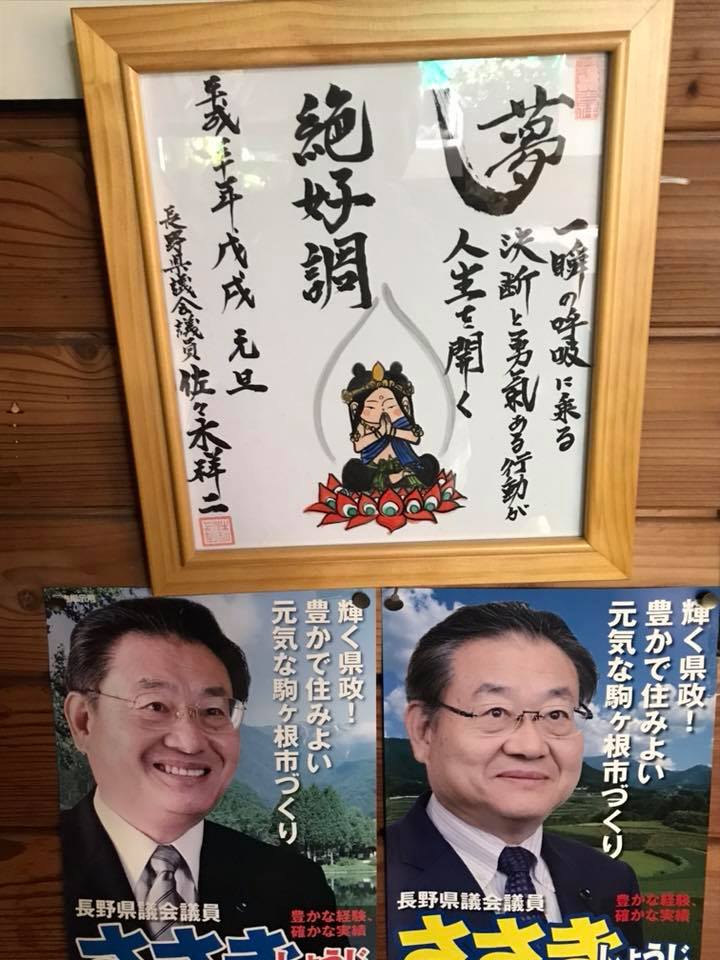 夢
一瞬の呼吸に乗る
決断と勇氣ある行動が
人生を開く
絶好調
平成三十年戊戌元旦
長野県議会議員 佐々木祥二
輝く県政！
豊かで住みよい
元気な駒ヶ根市づくり
長野県議会議員
豊かな経験、
確かな実績
ささき
しょうじ
輝く県政！
豊かで住みよい
元気な駒ヶ根市づくり
長野県議会議員
豊かな経験、
確かな実績
ささき
しょうじ